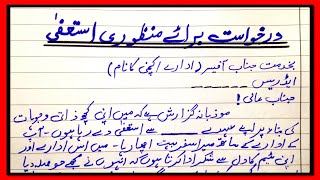 درخواست برائے منظوری استعفیٰ
بخدمت جناب آفیسر (ادارے / کمپنی کا نام)
ایڈریس ـــــــــــ
جناب عالی!
مودبانہ گزارش ہے کہ میں اپنی کچھ ذاتی وجوہات
کی بناء پر اپنے عہدے ــــــــ سے استعفیٰ دے رہا ہوں - آپ
کے ادارے کے ساتھ میرا سفر بہت اچھا رہا - میں اس ادارے اور
اپنی ٹیم کا دل سے شکر ادا کرتا ہوں کہ انہوں نے مجھے حوصلہ دیا